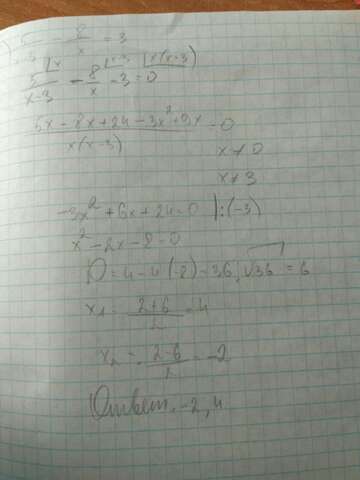 5/x-3 - 8/x = 3
5/x-3 - 8/x - 3 = 0
5x - 8x + 24 - 3x² + 9x / x(x-3) = 0
x ≠ 0
x ≠ 3
-3x² + 6x + 24 = 0 |:(-3)
x² - 2x - 8 = 0
D = 4 - 4·(-8) = 36, √36 = 6
x₁ = 2+6/2 = 4
x₂ = 2-6/2 = -2
Ответ: -2, 4